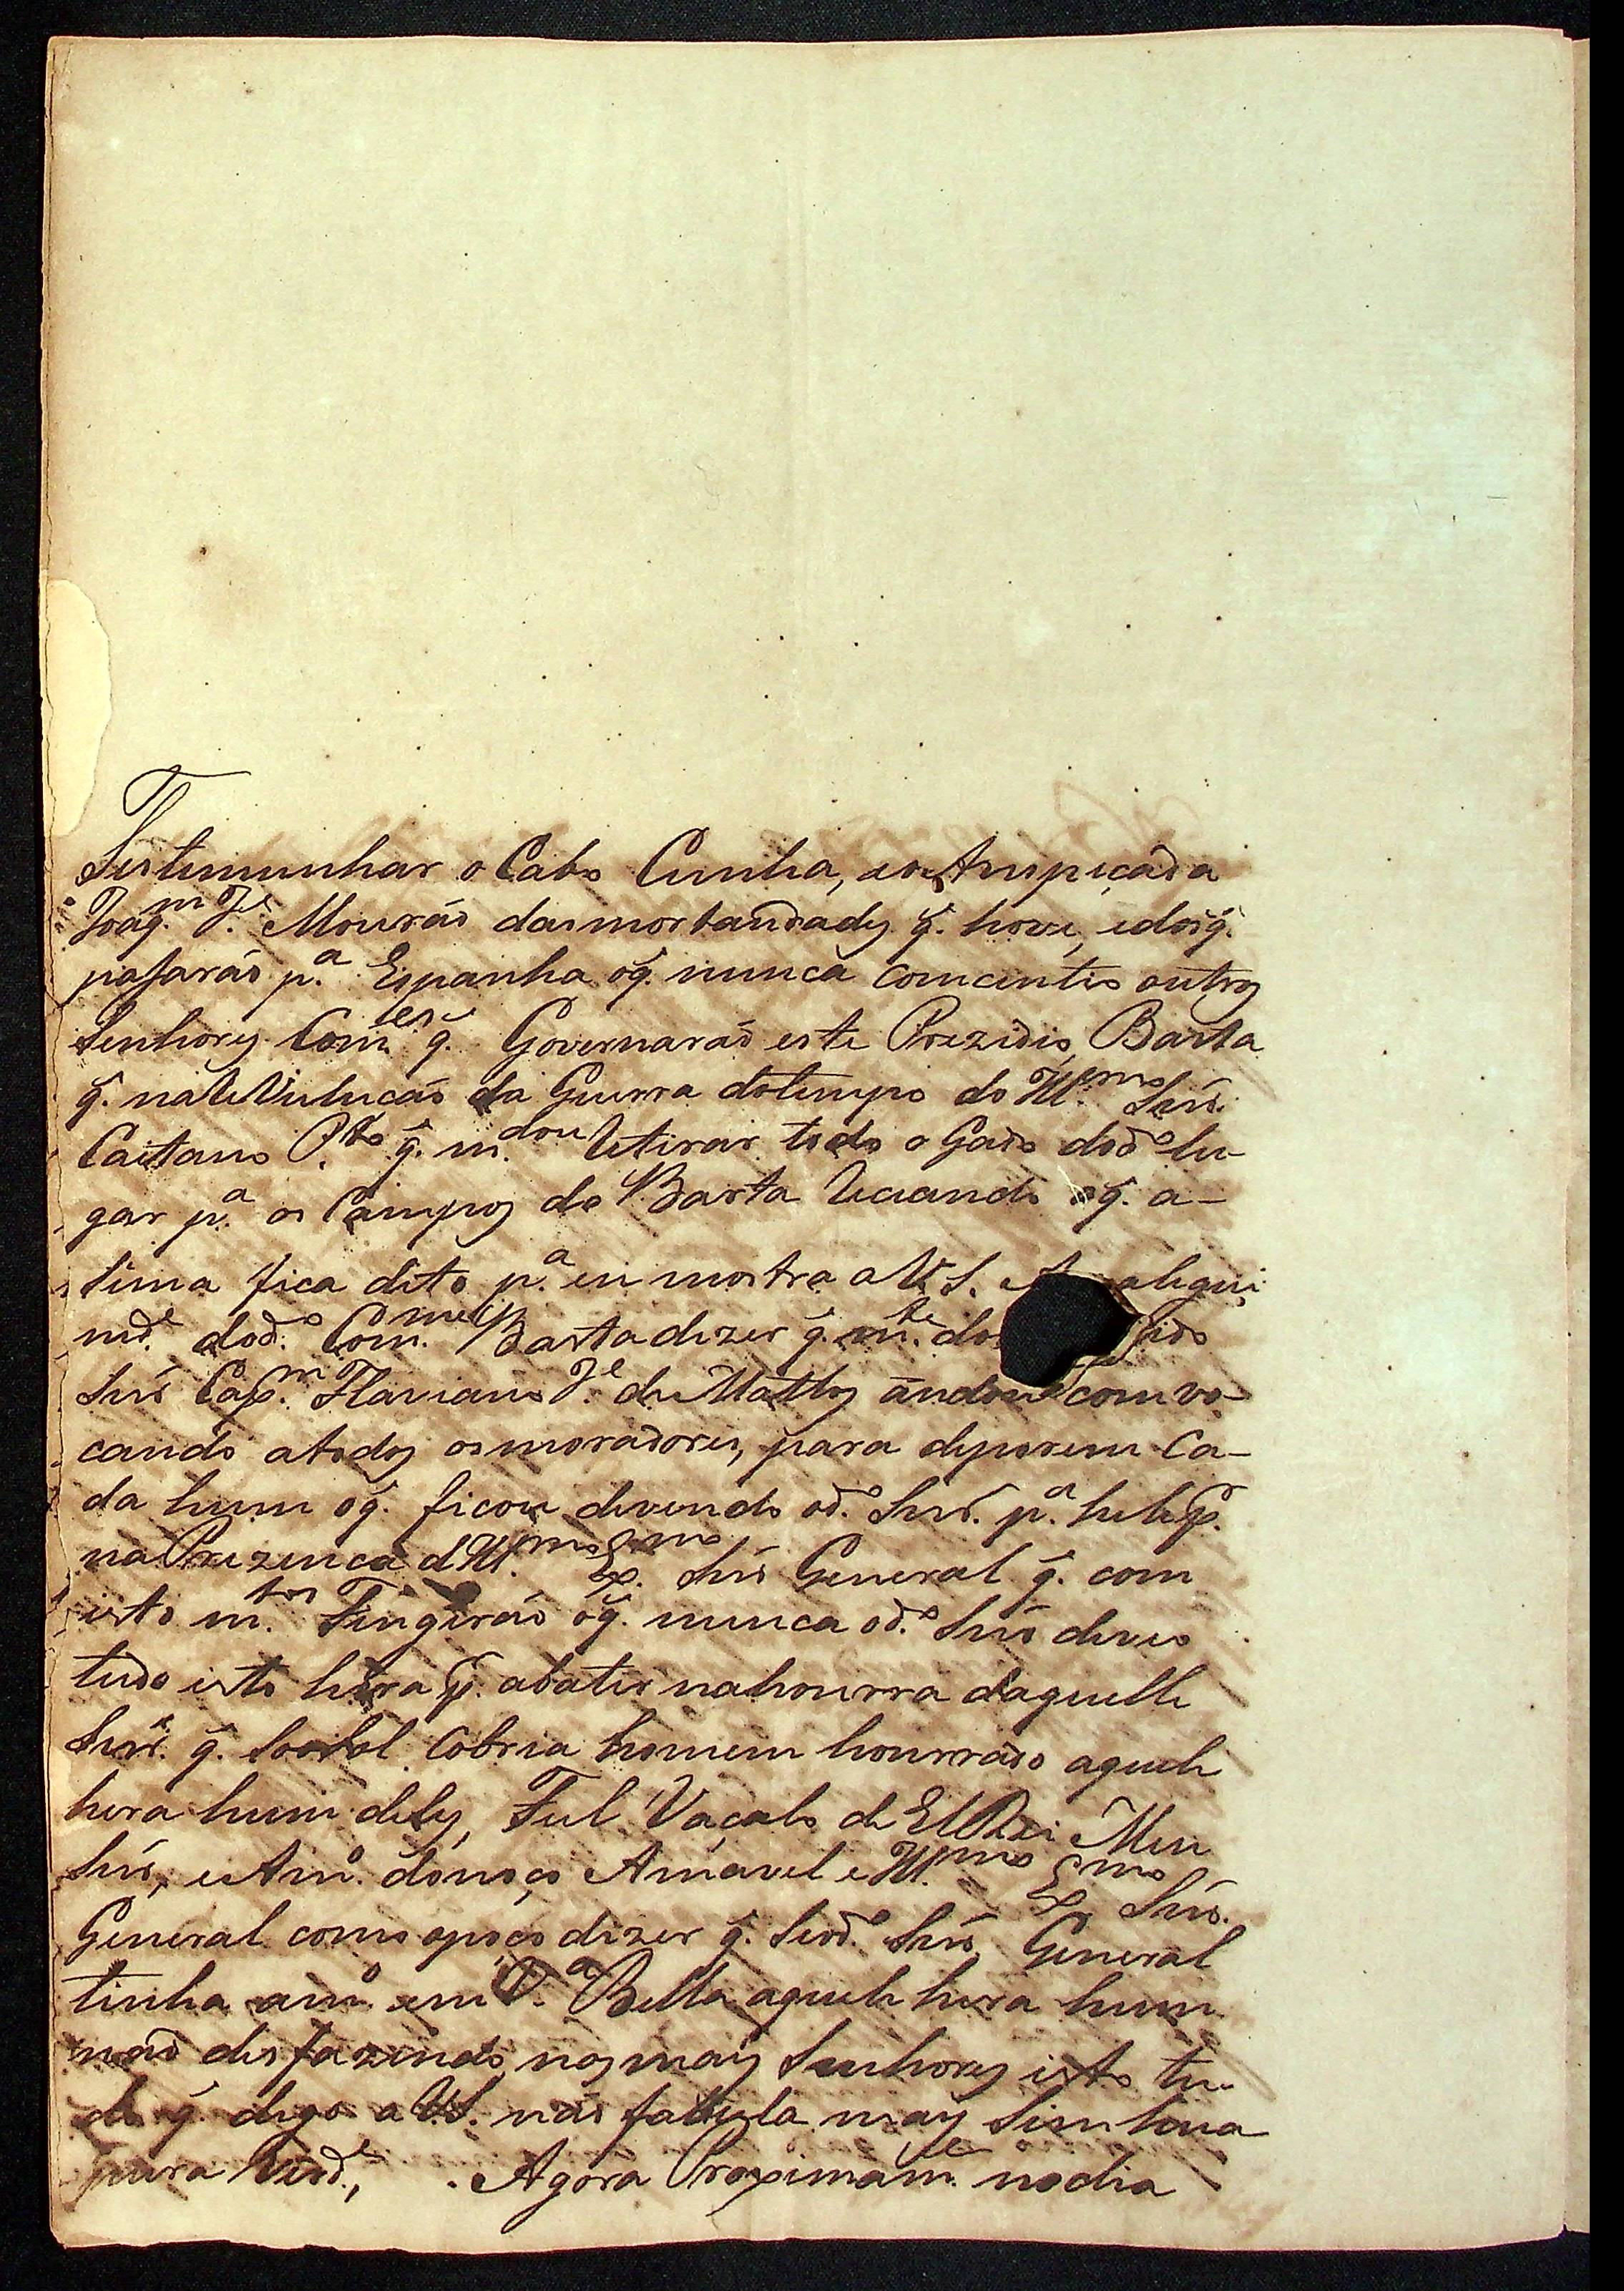 Testemunhar o Cabo Cunha, eo Anspeçada
Joaq.m J.e Mourão das mortandadeſ q̃. hove, e dos q̃.
paſarão p.a Espanha oq̃. nunca comcentio outroſ
Senhoreſ Com.es q̃. Governarão este Prezidio, Basta
q̃. na Revulucão da Guerra do tempo do Ill.mo Snr̃.
Caetano P.to q̃. m.dou Retirar todo o Gado dod.o lu-
gar p.a os Campoſ do Basta Receando oq̃. a-
sima fica dito p.a eu mostra a V. S.
md.e dod.o Com. Basta dizer q̃. m.te do
Snr̃ Cap.m Flaviano J.e de Mattoſ andou comvo-
cando atodoſ os moradores, para deporem Ca-
da hum oq̃. ficou devendo od.o Snr̃. p.a
na Prezenca d Ill.mo Ex.mo Snr̃ General q̃. com
isto m.tos Fingirão oq̃. nunca od.o Snr̃ deveo
tudo isto hera p.a abater nahonrra daquelle
Snr̃. q̃. Cobria homem honrrado aquele
hera hum deleſ, Fiel Vaçalo de El Rei Meu
Snr̃, e Am.o donoço Amavel e Ill.mo Ex.mo Snr̃.
General como opoço dizer q̃. Seod.o Snr̃ General
tinha am.o em V.a Bella aquele hera hum
não desfazendo noſ maiſ Senhoreſ isto tu-
do q̃. digo a V.S. não fabula maiſ Sim hua
pura Verd.e, . Agora Proximam.te nodia